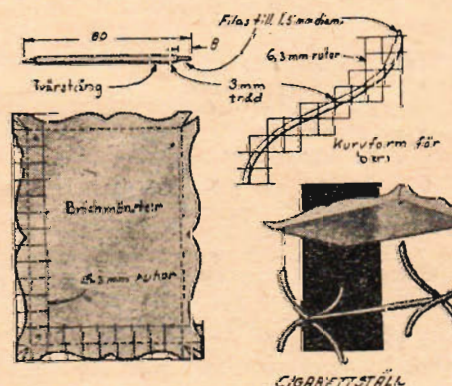 80
8
Filas till 1,5 mm diam.
6,3 mm rutor
Tvärstång
3 mm
tråd
Kurvform för
ben
Brickmönster
6,3 mm rutor
CIGARETTSTÄLL